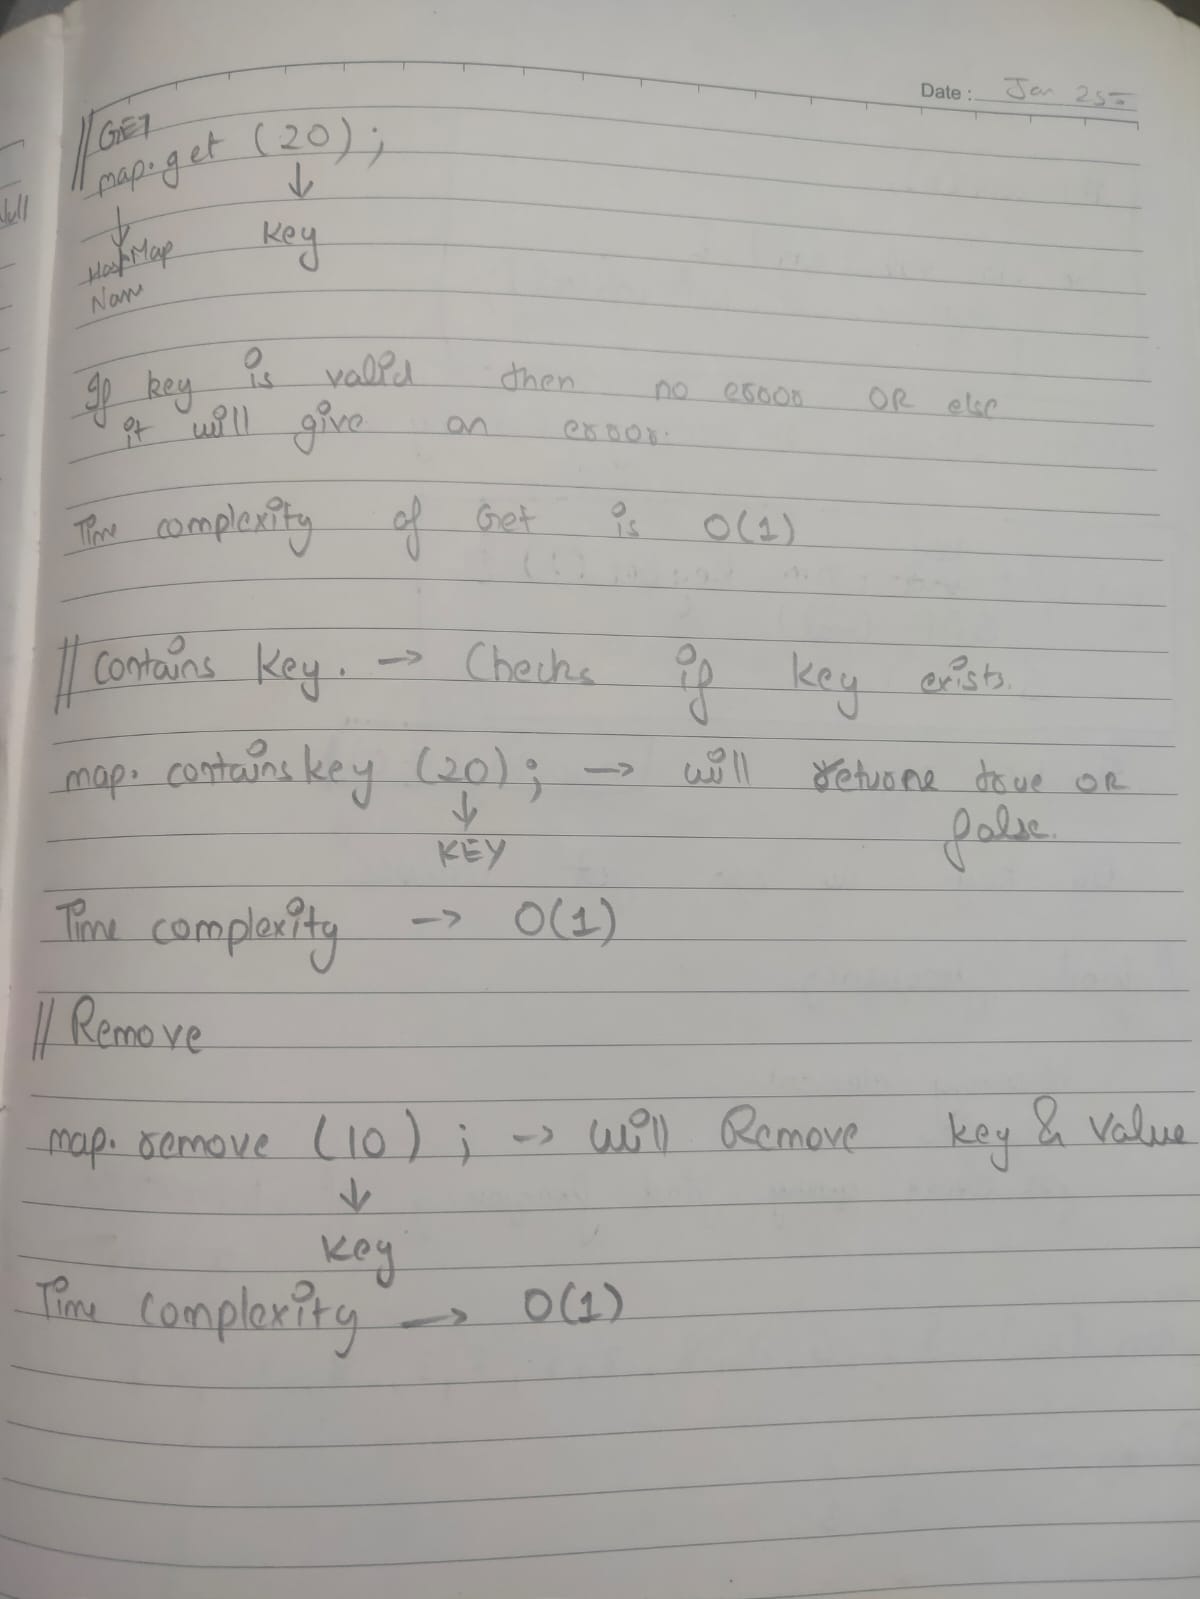 Date : Jan 25
// GET
map.get (20) ;
↓ ↓
HashMap Key
Name
If key is valid then no error OR else
it will give an error.
Time complexity of Get is O(1)
// Contains Key. → Checks if key exists.
map. contains key (20) ; → will retune true OR
false.
↓
KEY
Time complexity → O(1)
// Remove
map. remove (10) ; → will Remove key & value
↓
Key
Time Complexity → O(1)